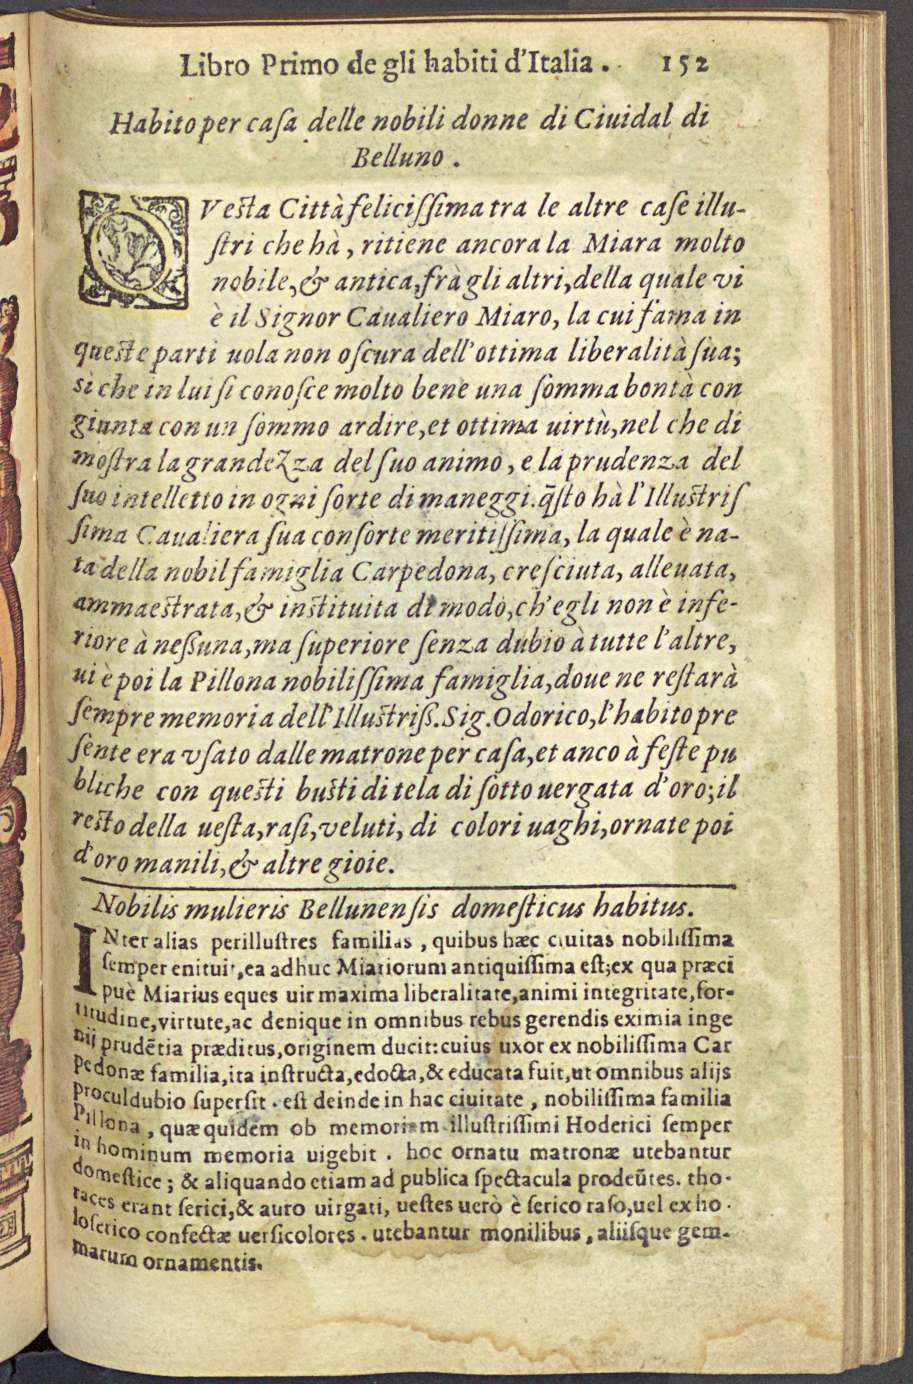 Libro Primo de gli habiti d'Italia. 152
Habito per caſa delle nobili donne di Ciuidal di
Belluno.
QVeſta Città feliciſſima tra le altre caſe illu-
ſtri che hà, ritiene ancora la Miara molto
nobile,& antica,frà gli altri,della quale vi
è il Signor Caualiero Miaro, la cui fama in
queſte parti uola non oſcura dell'ottima liberalità ſua;
sì che in lui ſi conoſce molto bene una ſomma bontà con
giunta con un ſommo ardire,et ottima uirtù,nel che di
moſtra la grandezza del ſuo animo, e la prudenza del
ſuo intelletto in ogni ſorte di maneggi.q̃ſto hà l'Illuſtriſ
ſima Caualiera ſua conſorte meritiſſima, la quale è na-
ta della nobil famiglia Carpedona, creſciuta, alleuata,
ammaeſtrata,& inſtituita di modo,ch'egli non è infe-
riore à neſſuna,ma ſuperiore ſenza dubio à tutte l'altre,
ui è poi la Pillona nobiliſſima famiglia,doue ne reſtarà
ſempre memoria dell'Illuſtriſſ.Sig.Odorico,l'habito pre
ſente era vſato dalle matrone per caſa,et anco à feſte pu
bliche con queſti buſti di tela di ſotto uergata d'oro;il
reſto della ueſta,raſi,veluti, di colori uaghi,ornate poi
d'oro manili,& altre gioie.
Nobilis mulieris Bellunenſis domeſticus habitus.
INter alias perilluſtres familias, quibus hæc ciuitas nobiliſſima
ſemper enituit,ea adhuc Miariorum antiquiſſima eſt;ex qua præci
puè Miarius eques uir maxima liberalitate,animi integritate,for-
titudine,virtute,ac denique in omnibus rebus gerendis eximia inge
nij prudẽtia præditus,originem ducit:cuius uxor ex nobiliſſima Car
pedonæ familia,ita inſtructa,edocta,& educata fuit,ut omnibus alijs
proculdubio ſuperſit. eſt deinde in hac ciuitate, nobiliſſima familia
Pillona, quæ quidem ob memoriam illuſtriſſimi Hoderici ſemper
in hominum memoria uigebit. hoc ornatu matronæ utebantur
domeſtice; & aliquando etiam ad publica ſpectacula prodeũtes. tho-
races erant ſerici,& auro uirgati, ueſtes uerò è ſerico raſo,uel ex ho-
loſerico confectæ uerſicolores. utebantur monilibus, aliiſque gem-
marum ornamentis.